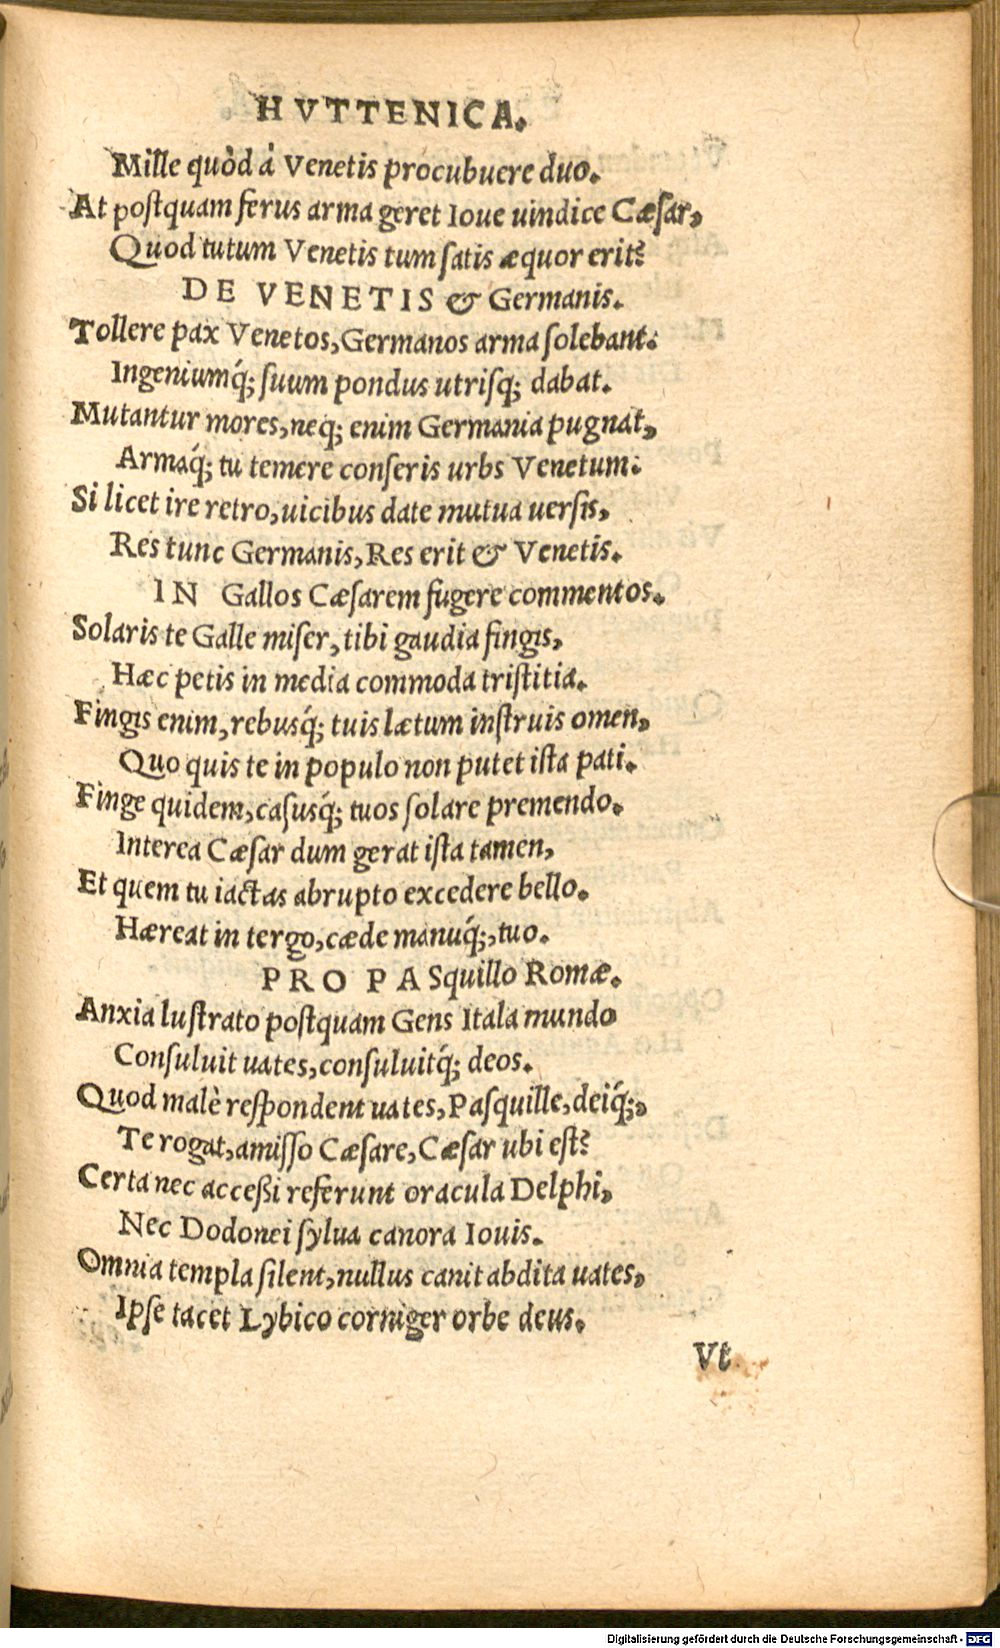 HVTTENICA.
Mille quòd á Venetis procubuere duo.
At postquam ferus arma geret Ioue uindice Cæsar,
Quod tutum Venetis tum satis æquor erit?
DE VENETIS & Germanis.
Tollere pax Venetos, Germanos arma solebant:
Ingeniumq́; suum pondus utrisq; dabat.
Mutantur mores, neq; enim Germania pugnat,
Armaq́; tu temere conseris urbs Venetum:
Si licet ire retro, uicibus date mutua uersis,
Res tunc Germanis, Res erit & Venetis.
IN Gallos Cæsarem fugere commentos.
Solaris te Galle miser, tibi gaudia fingis,
Hæc petis in media commoda tristitia.
Fingis enim, rebusq́; tuis lætum instruis omen,
Quo quis te in populo non putet ista pati.
Finge quidem, casusq́; tuos solare premendo.
Interea Cæsar dum gerat ista tamen,
Et quem tu iactas abrupto excedere bello.
Hæreat in tergo, cæde manuq́;, tuo.
PRO PASquillo Romæ.
Anxia lustrato postquam Gens Itala mundo
Consuluit uates, consuluitq́; deos.
Quod malè respondent uates, Pasquille, deiq́;,
Te rogat, amisso Cæsare, Cæsar ubi est?
Certa nec accessi referunt oracula Delphi,
Nec Dodonei sylua canora Iouis.
Omnia templa silent, nullus canit abdita uates,
Ipse tacet Lybico corniger orbe deus.
Vt
Digitalisierung gefördert durch die Deutsche Forschungsgemeinschaft - DFG